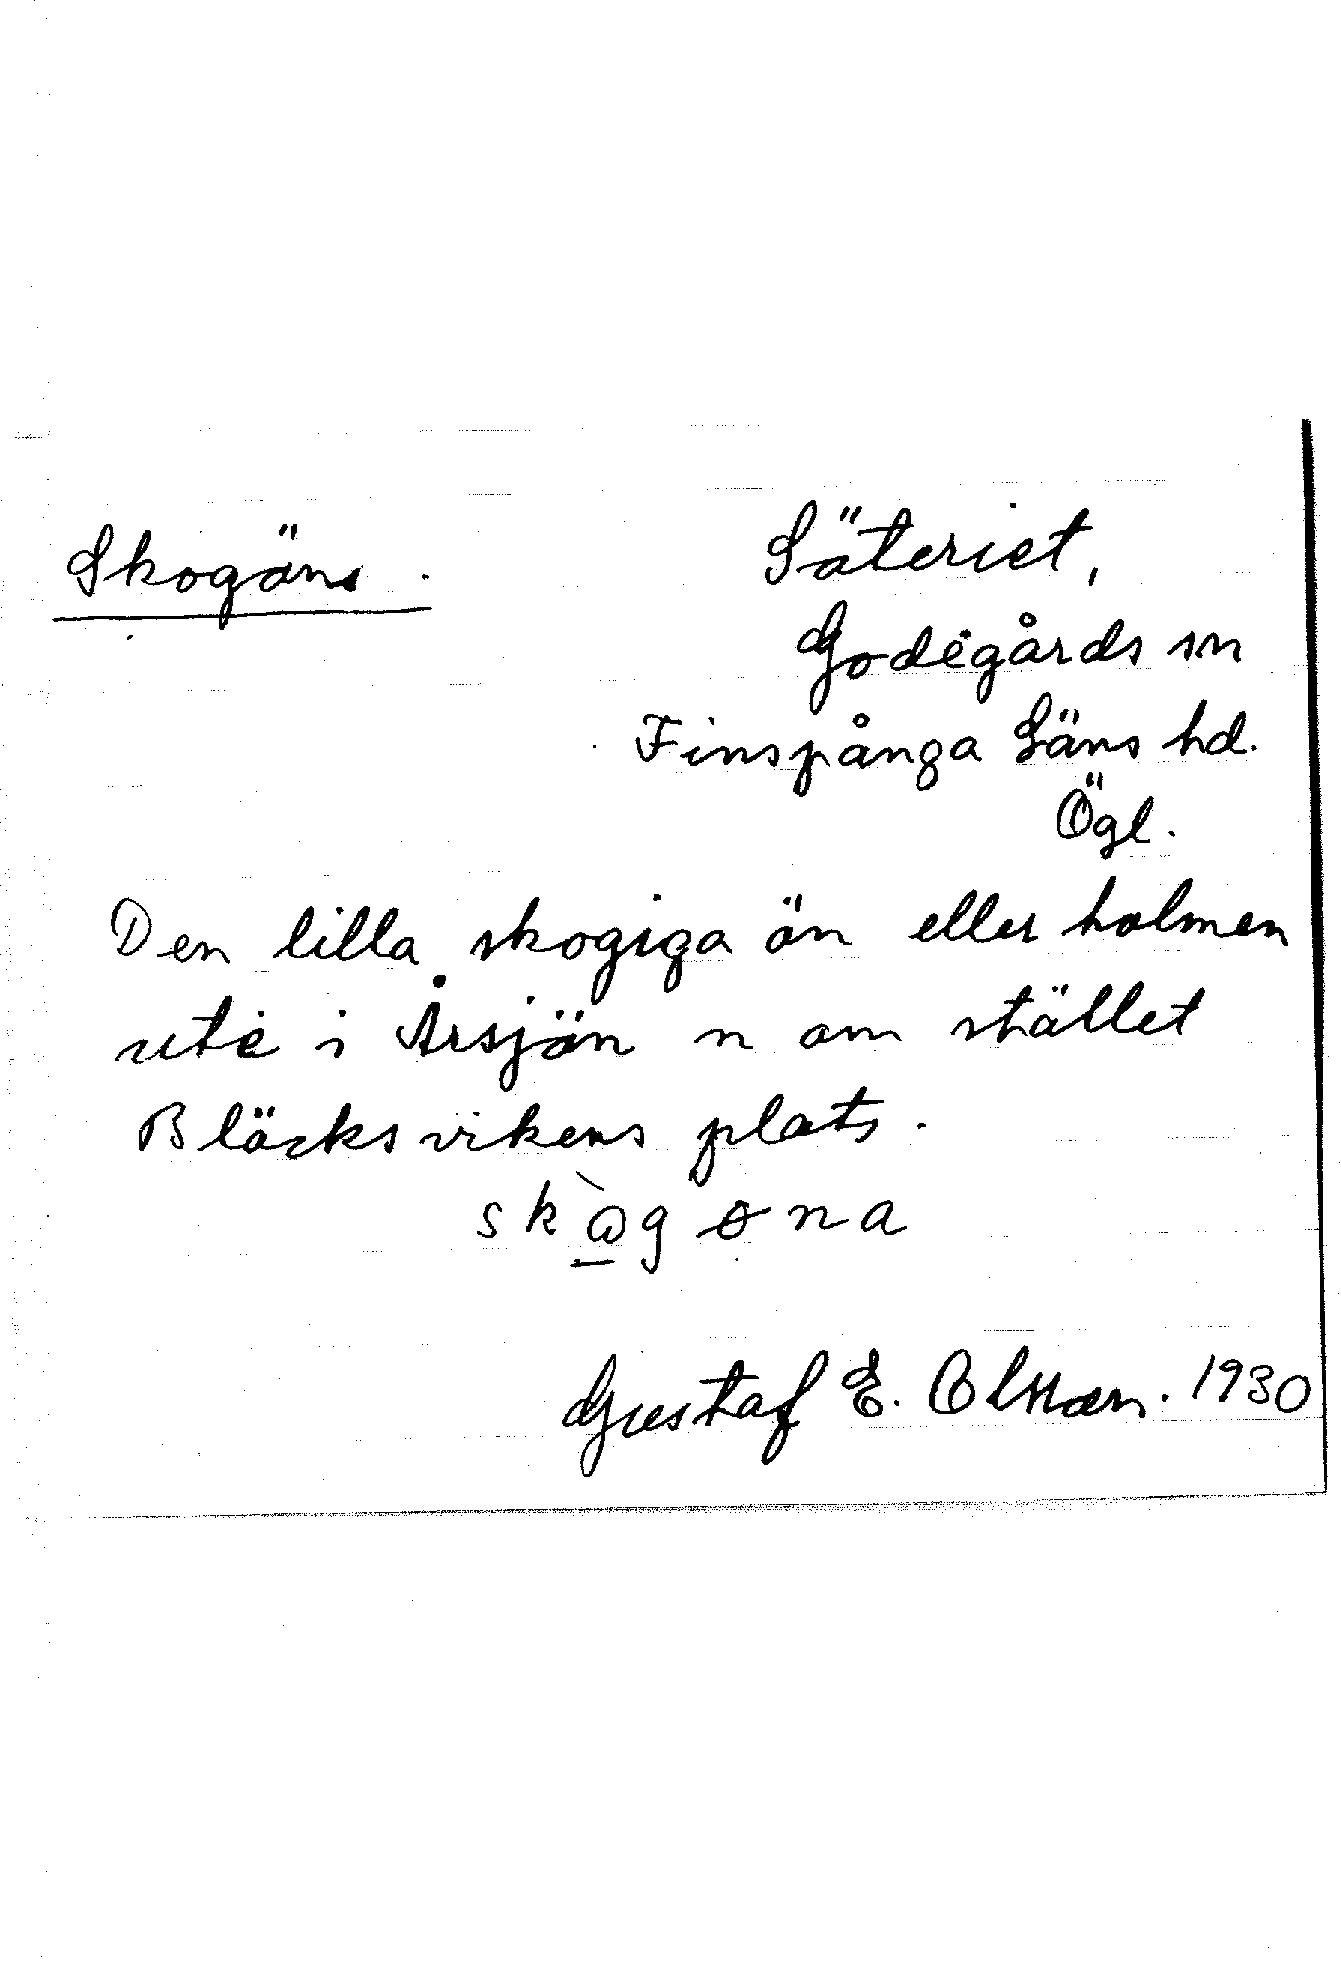 Skogöns.
Säteriet,
Godegårds sn
Finspånga Läns hd.
Ögl.
Den lilla skogiga ön eller holmen
ute i Årsjön n om stället
Bläcksvikens plats.
skὼ̲gøna
Gustaf E. Olsson. 1930